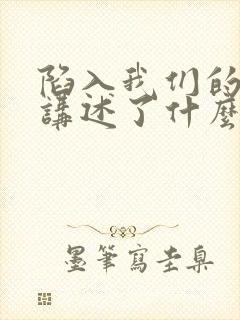 陷入我们的
講述了什麼
墨筆寫圭臬